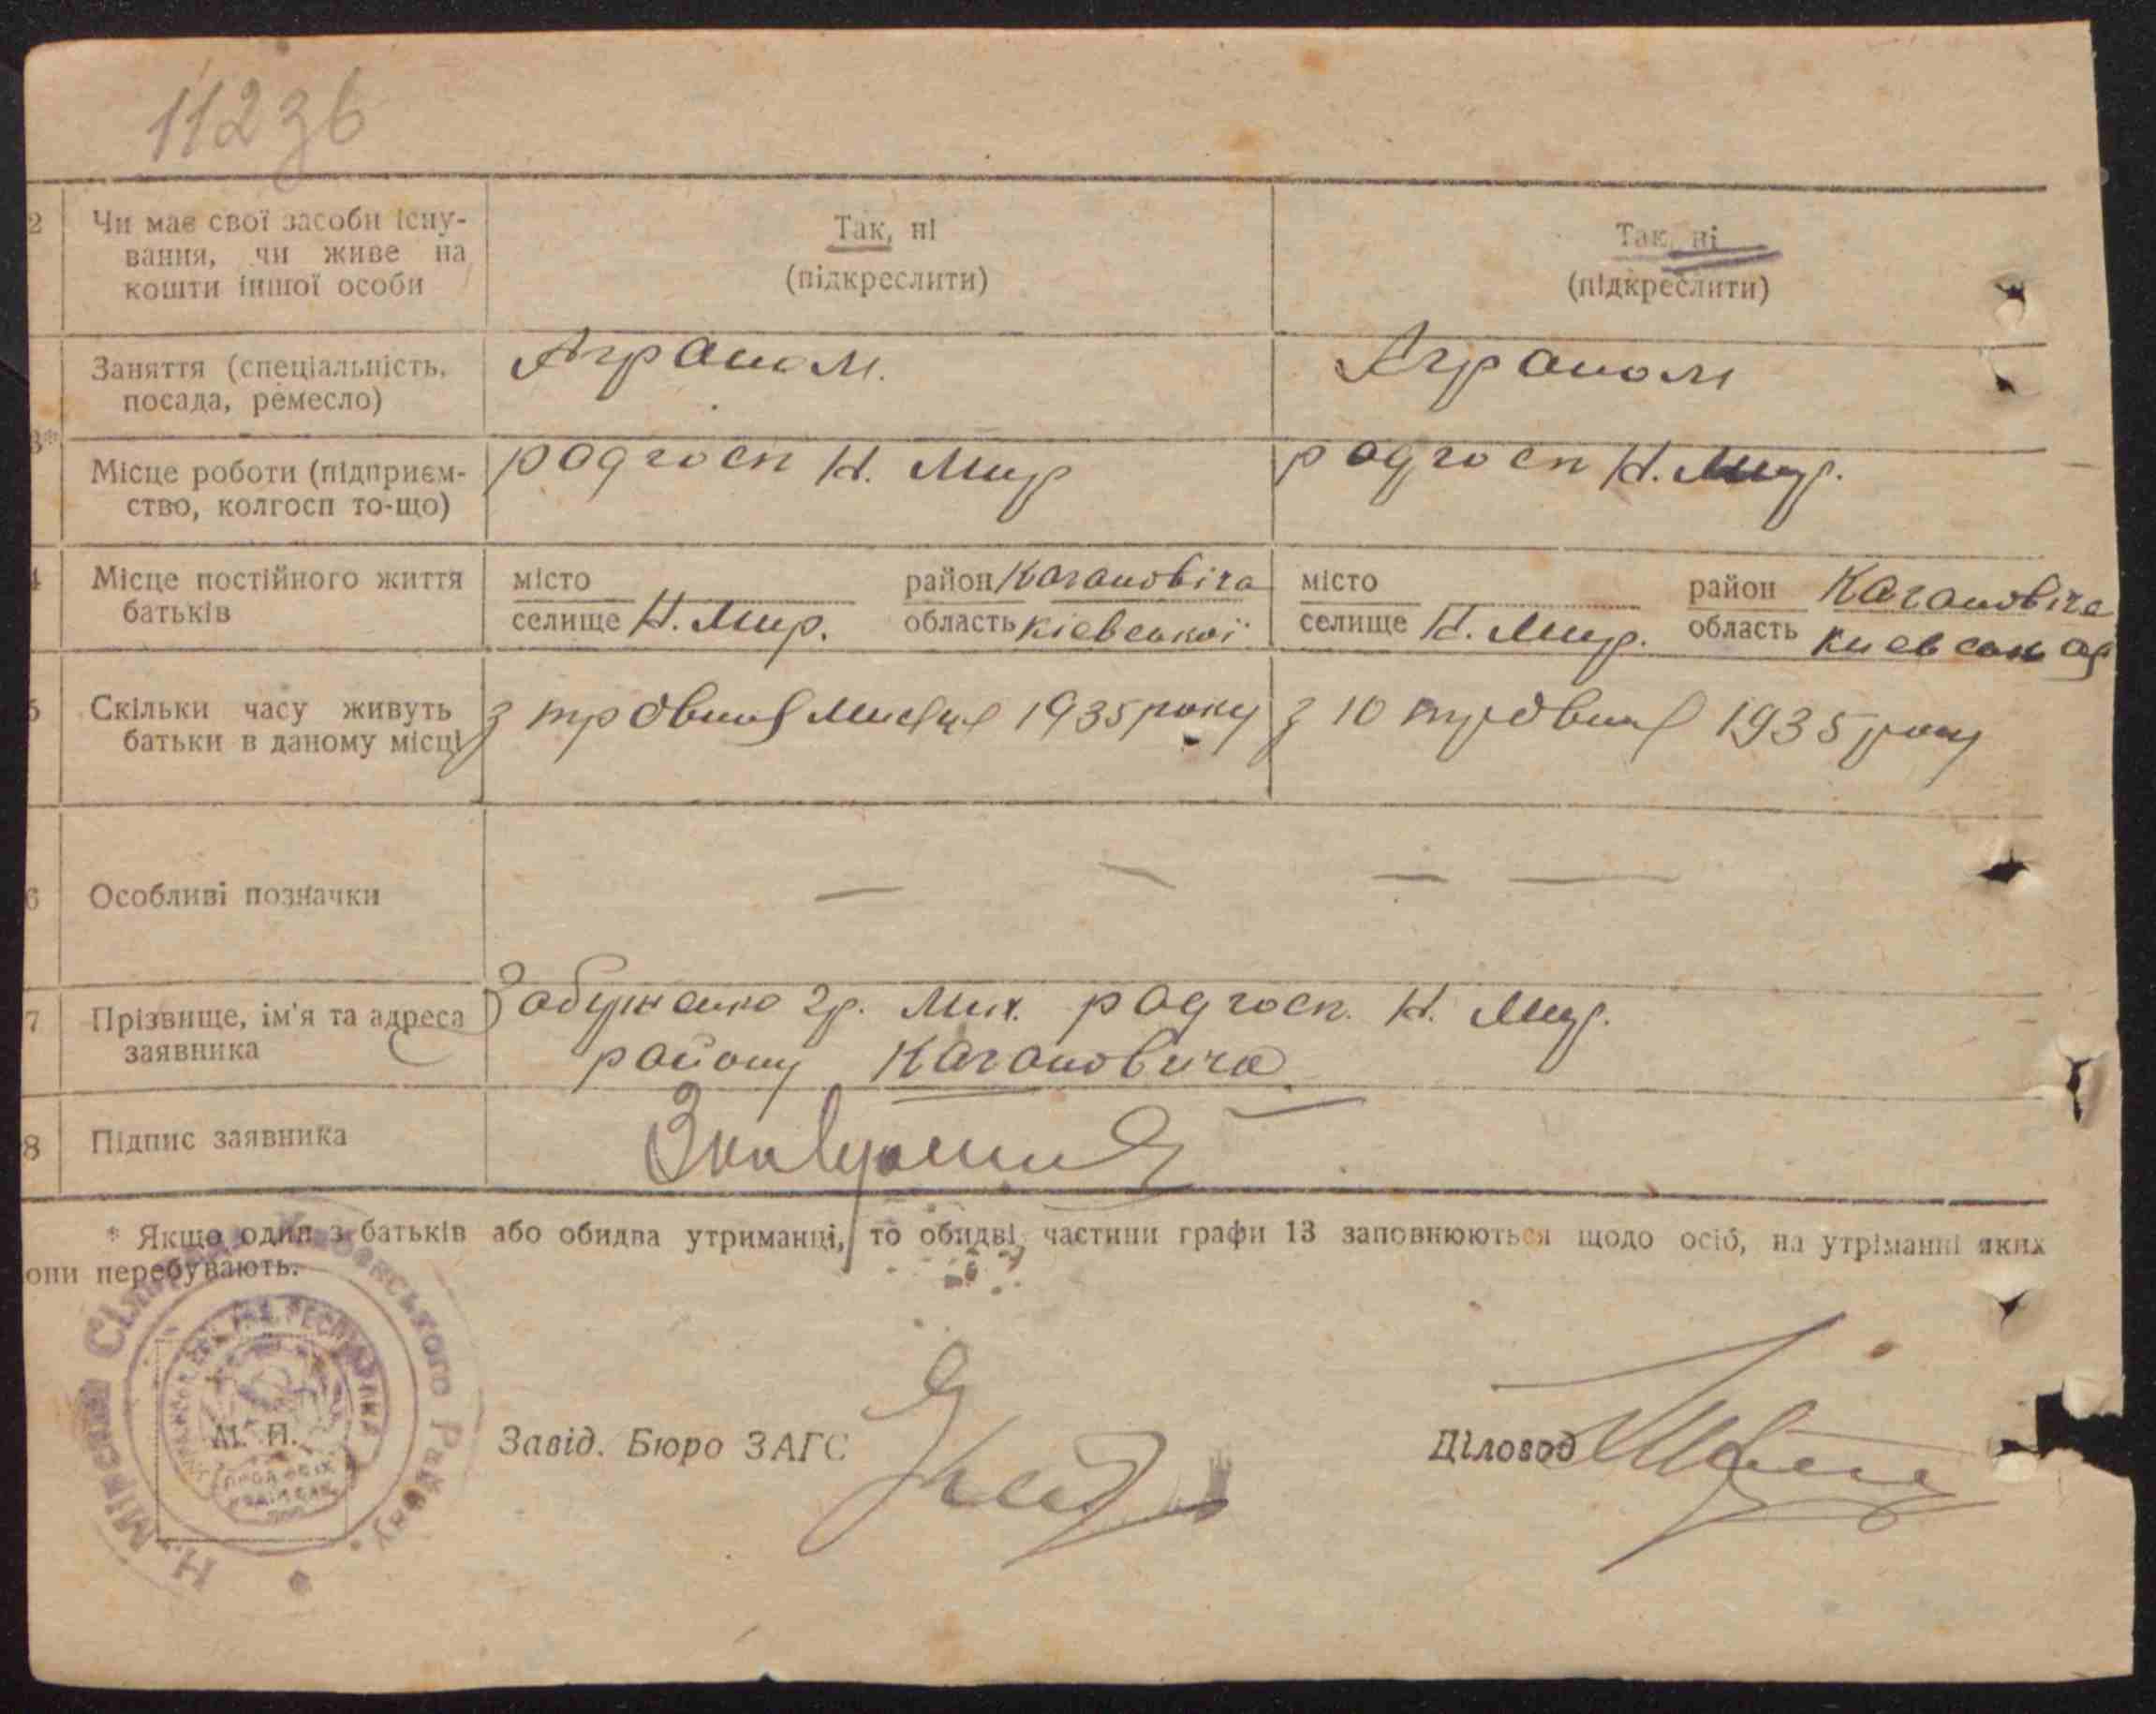 11236
2 Чи має свої засоби існу- Так, ні Так, ні
вання, чи живе на
кошти іншої особи (підкреслити) (підкреслити)
Заняття (спеціальність, Аграном. Аграном
посада, ремесло)
3*
Місце роботи (підприєм- радгосп Н. Мир радгосп Н. Мир.
ство, колгосп то-що)
4 Місце постійного життя місто район Кагановіча місто район Кагановіча
батьків селище Н. Мир. область Кіевської селище Н. Мир. область
5 Скільки часу живуть з 1935 року з 10 1935 року
батьки в даному місці
6 Особливі позначки — — — —
7 Прізвище, ім'я та адреса гр. Мих. радгосп. Н. Мир.
заявника району Кагановича
8 Підпис заявника
* Якщо один з батьків або обидва утриманці, то обидві частини графи 13 заповнюються щодо осіб, на утріманні яких
они перебувають.
М. П.
Завід. Бюро ЗАГС Діловод